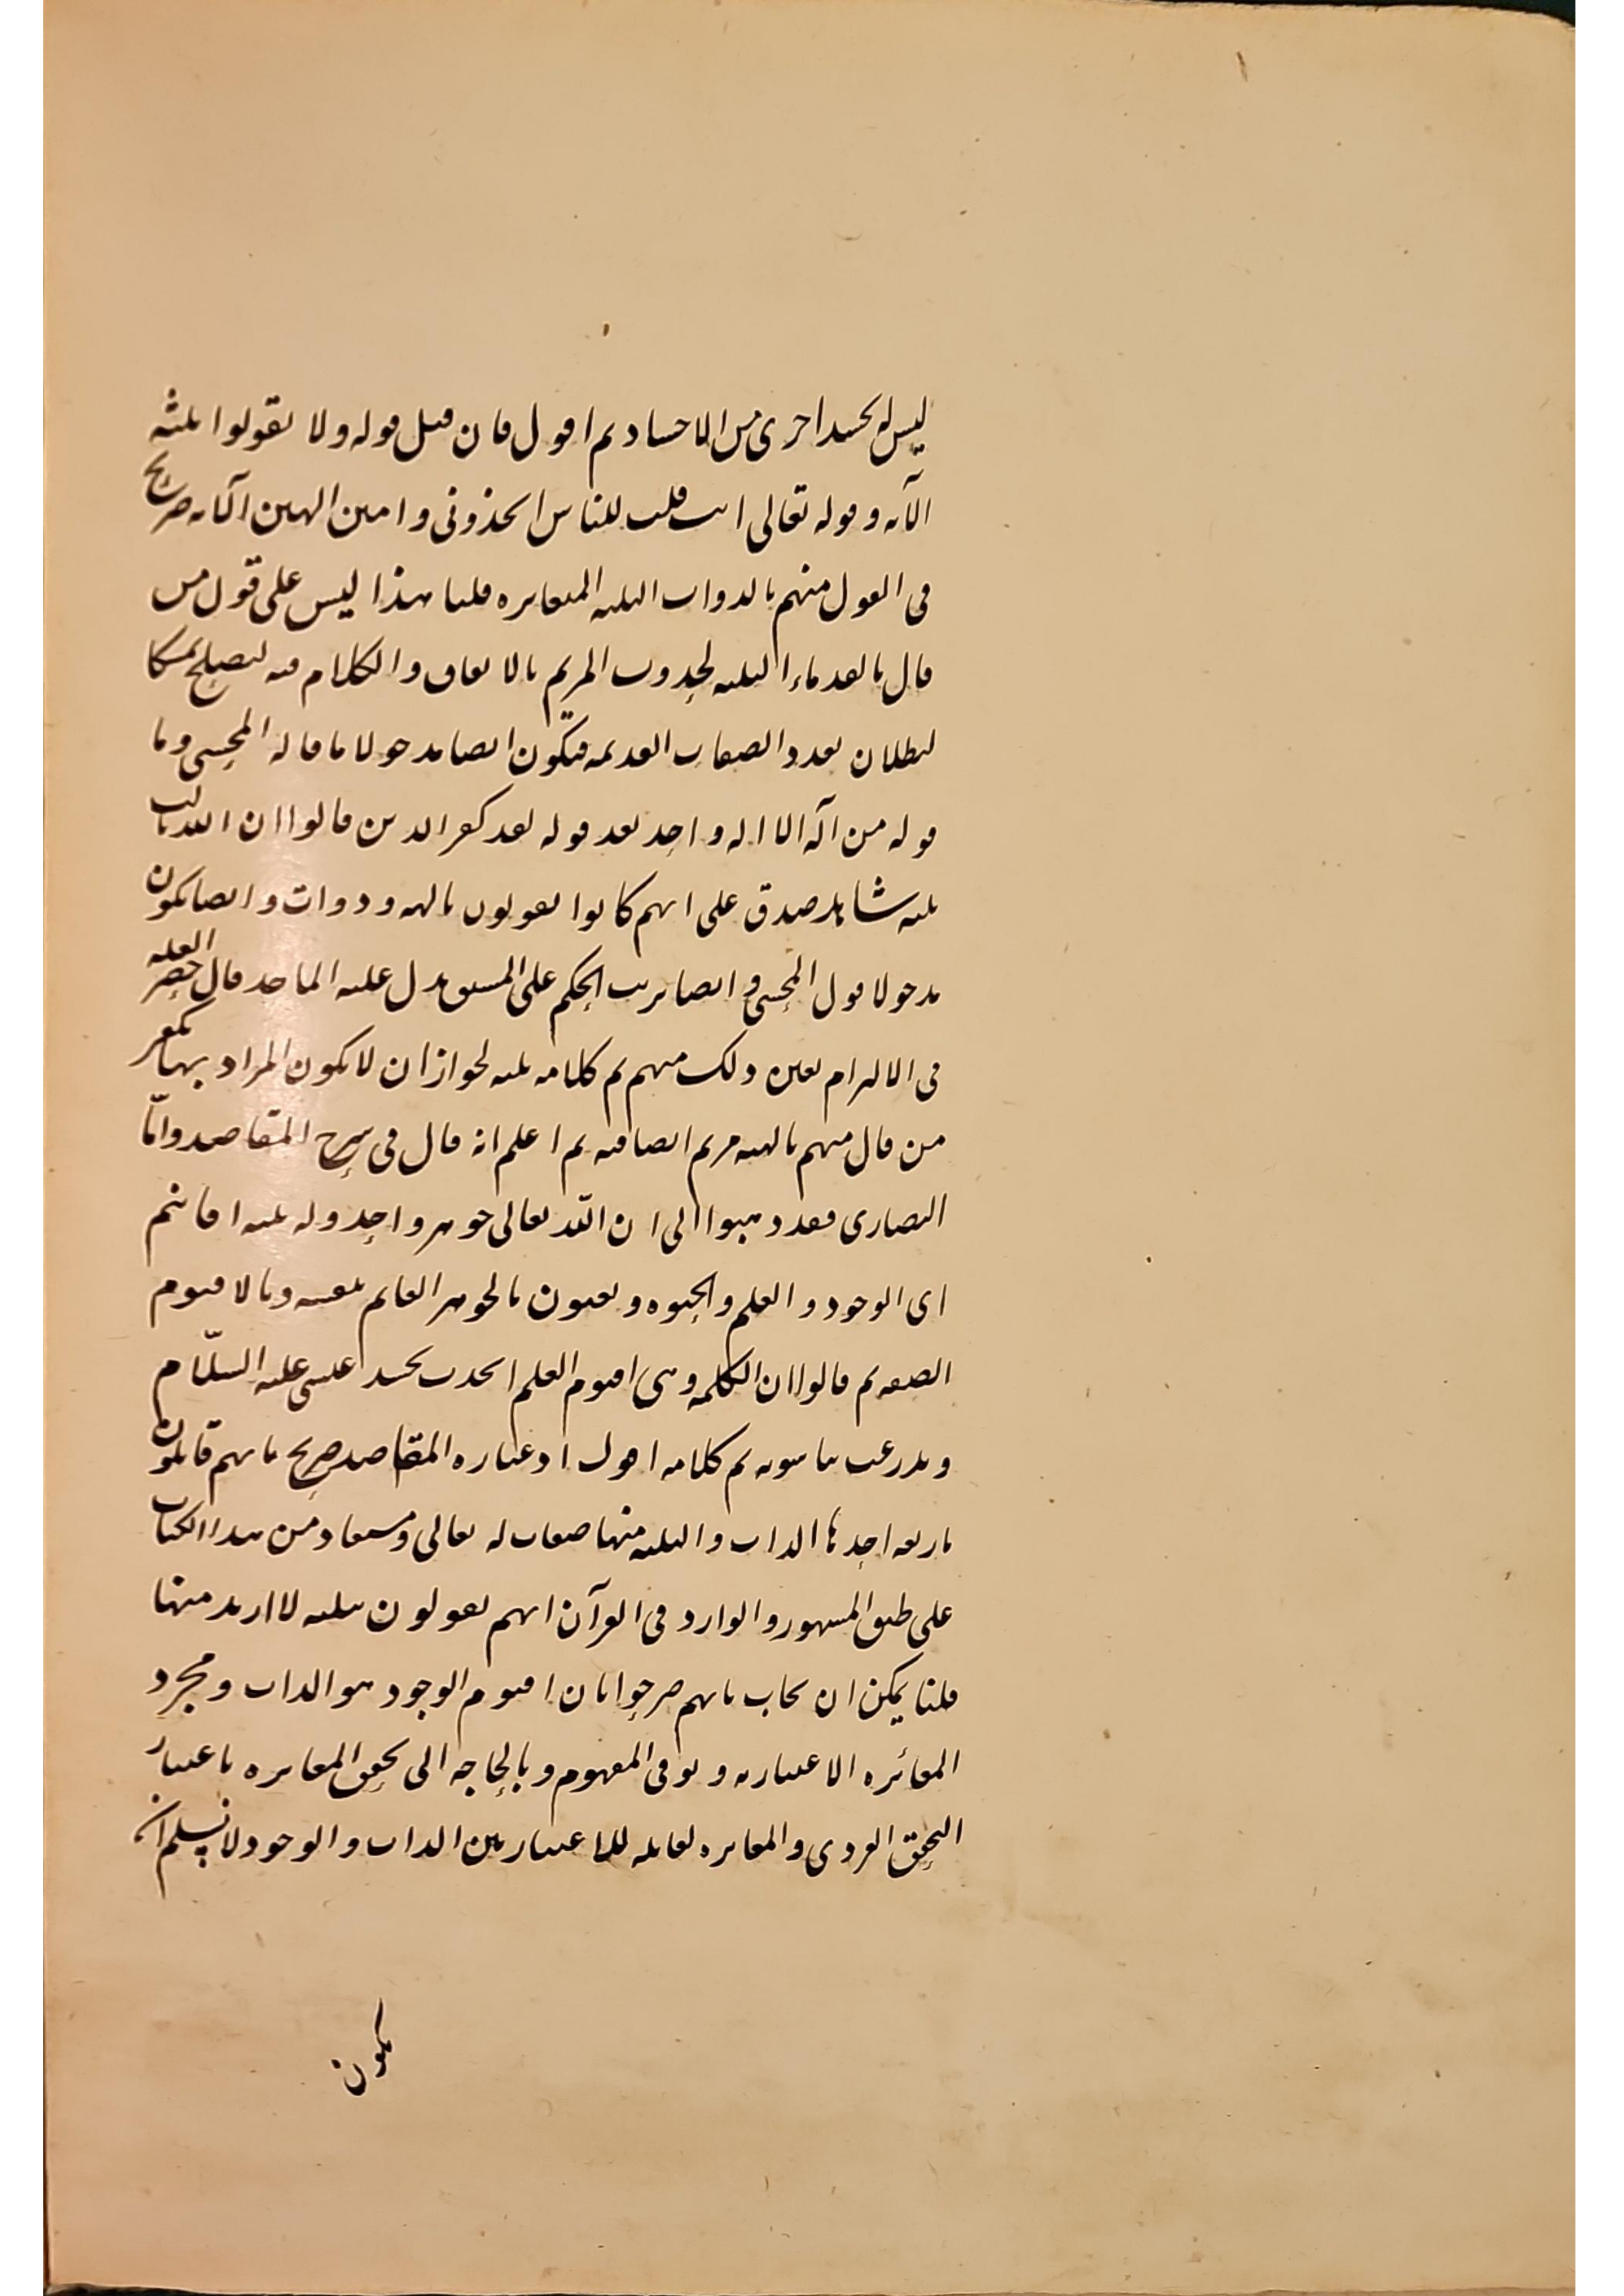 ليس له بجسد اخرى من الاجساد ثم اقول فان قيل قوله ولا تقولوا ثلثة
الآية وقوله تعالى اانت قلت للناس اتخذونى وامى الهين الآية صريح
فى القول منهم بالذوات الثلثة المتغايرة قلنا هذا ليس على قول من
قال بالقدماء الثلثة لحدوث المريم بالاتفاق والكلام فيه ليصلح تمسكا
لبطلان تعدد الصفات القديمة فيكون ايضا مدخولا ما قاله المحشى وما
قوله من اله الا اله واحد بعد قوله لقد كفر الذين قالوا ان الله ثالث
ثلثة شاهد صدق على انهم كانوا يقولون بالهة وذوات وايضا يكون
مدخولا قول المحشى وايضا ترتب الحكم على المشتق يدل على علية المأخذ فال حصر العلة
فى الالتزام تعين ذلك منهم تم كلامه ثلثة لجواز ان لا يكون المراد بها كفر
من قال منهم بالهية مريم ايضا فيه ثم اعلم انه قال فى شرح المقاصد واما
النصارى فقد ذهبوا الى ان الله تعالى جوهر واحد وله ثلثة اقانيم
اى الوجود والعلم والحيوة ويعنون بالجوهر القائم بنفسه وبالاقنوم
الصفة ثم قالوا ان الكلمة وهى اقنوم العلم اتحدت بجسد عيسى عليه السلام
وتدرعت بناسوته تم كلامه اقول اذ عباره المقاصد صريح بانهم قائلون
باربعة احدها الذات والثلثة منها صفات له تعالى ومستفاد من هذا الكتاب
على طبق المشهور والوارد فى القرآن انهم يقولون بثلثة لا ازيد منها
قلنا يمكن ان يجاب بانهم صرحوا بان اقنوم الوجود هو الذات ومجرد
المغائرة الاعتبارية ولو فى المفهوم وبالحاجة الى تحقق المغايرة باعتبار
التحقق الفردى والمغايرة لقابلة للاعتبار بين الذات والوجود لا نسلم ان
يكون